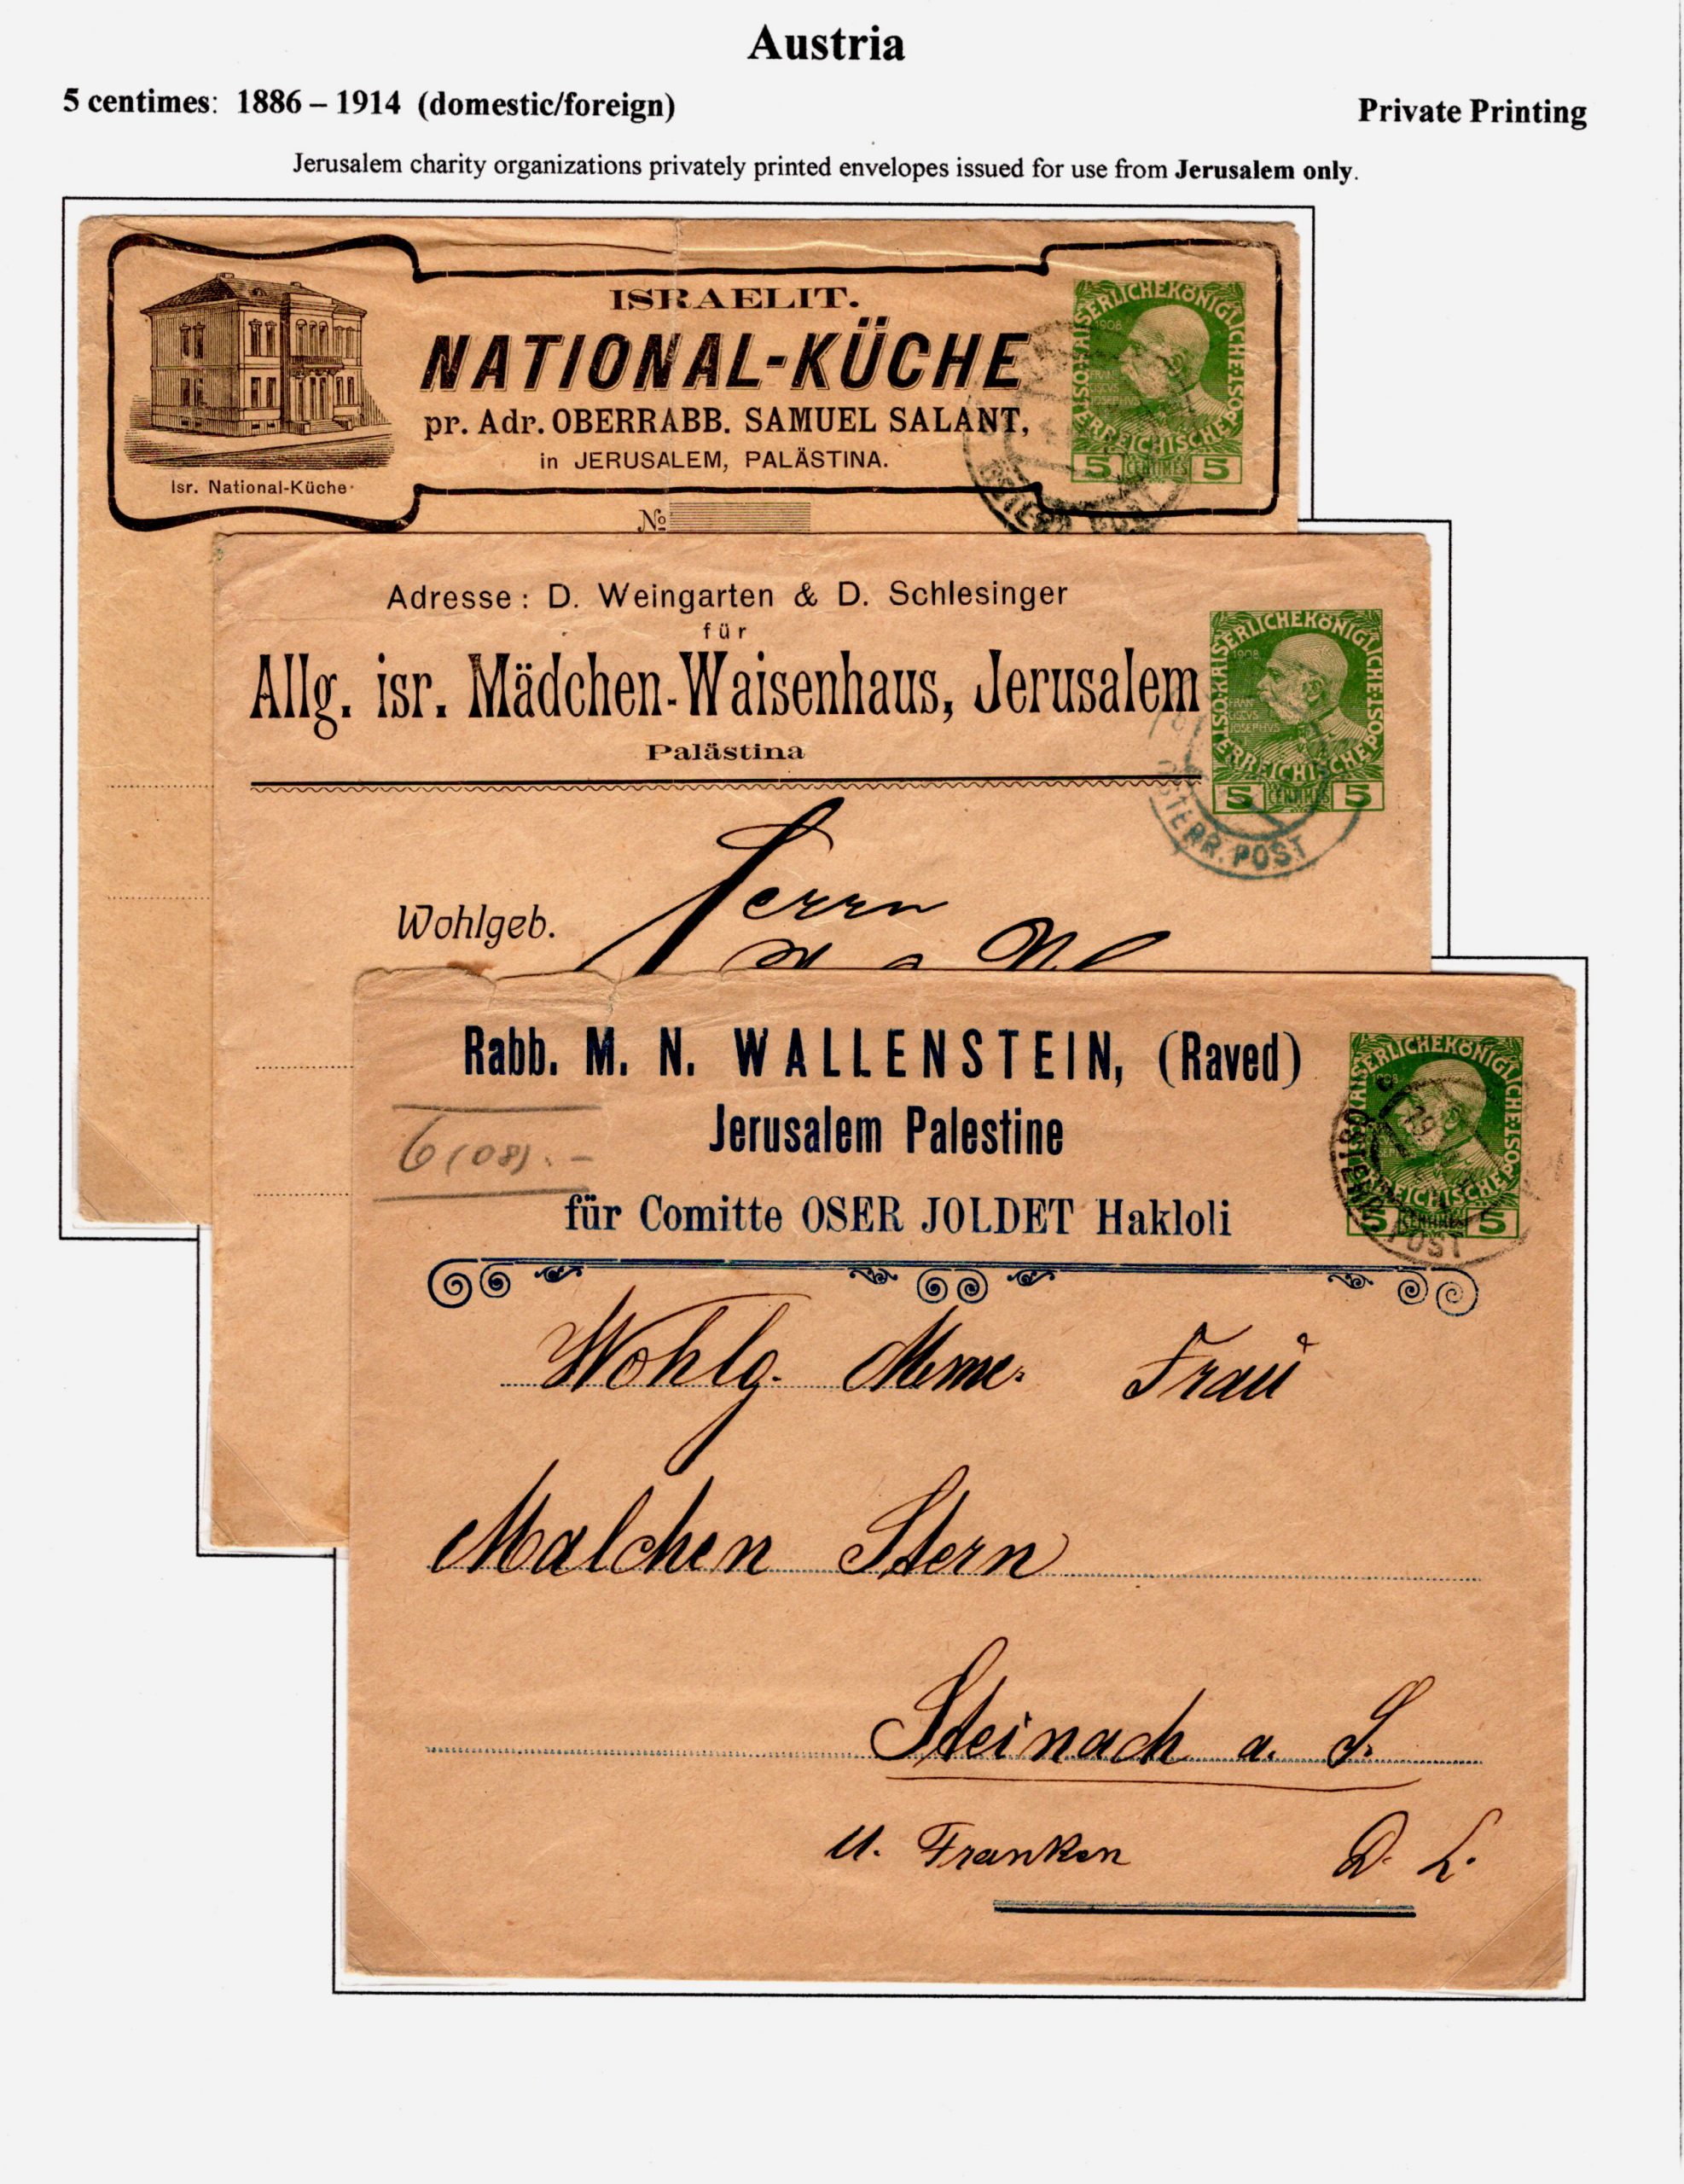 Austria
5 centimes: 1886 – 1914 (domestic/foreign)
Private Printing
Jerusalem charity organizations privately printed envelopes issued for use from Jerusalem only.
ISRAELIT.
NATIONAL-KÜCHE
pr. Adr. OBERRABB. SAMUEL SALANT,
in JERUSALEM, PALÄSTINA.
Isr. National-Küche
№
KAISERLICHEKÖNIGLICHE ÖSTERREICHISCHE POST
1908
FRAN
CISCVS
JOSEPHVS
5 CENTIMES 5
Adresse: D. Weingarten & D. Schlesinger
für
Allg. isr. Mädchen-Waisenhaus, Jerusalem
Palästina
KAISERLICHEKÖNIGLICHE ÖSTERREICHISCHE POST
1908
FRAN
CISCVS
JOSEPHVS
5 CENTIMES 5
ÖSTERR. POST
Wohlgeb.
Herrn
Rabb. M. N. WALLENSTEIN, (Raved)
Jerusalem Palestine
für Comitte OSER JOLDET Hakloli
6 (08). –
KAISERLICHEKÖNIGLICHE
1908
5 CENTIMES 5
POST
Wohlg. Mme. Frau
Malchen Stern
Steinach a. S.
U. Franken D. L.